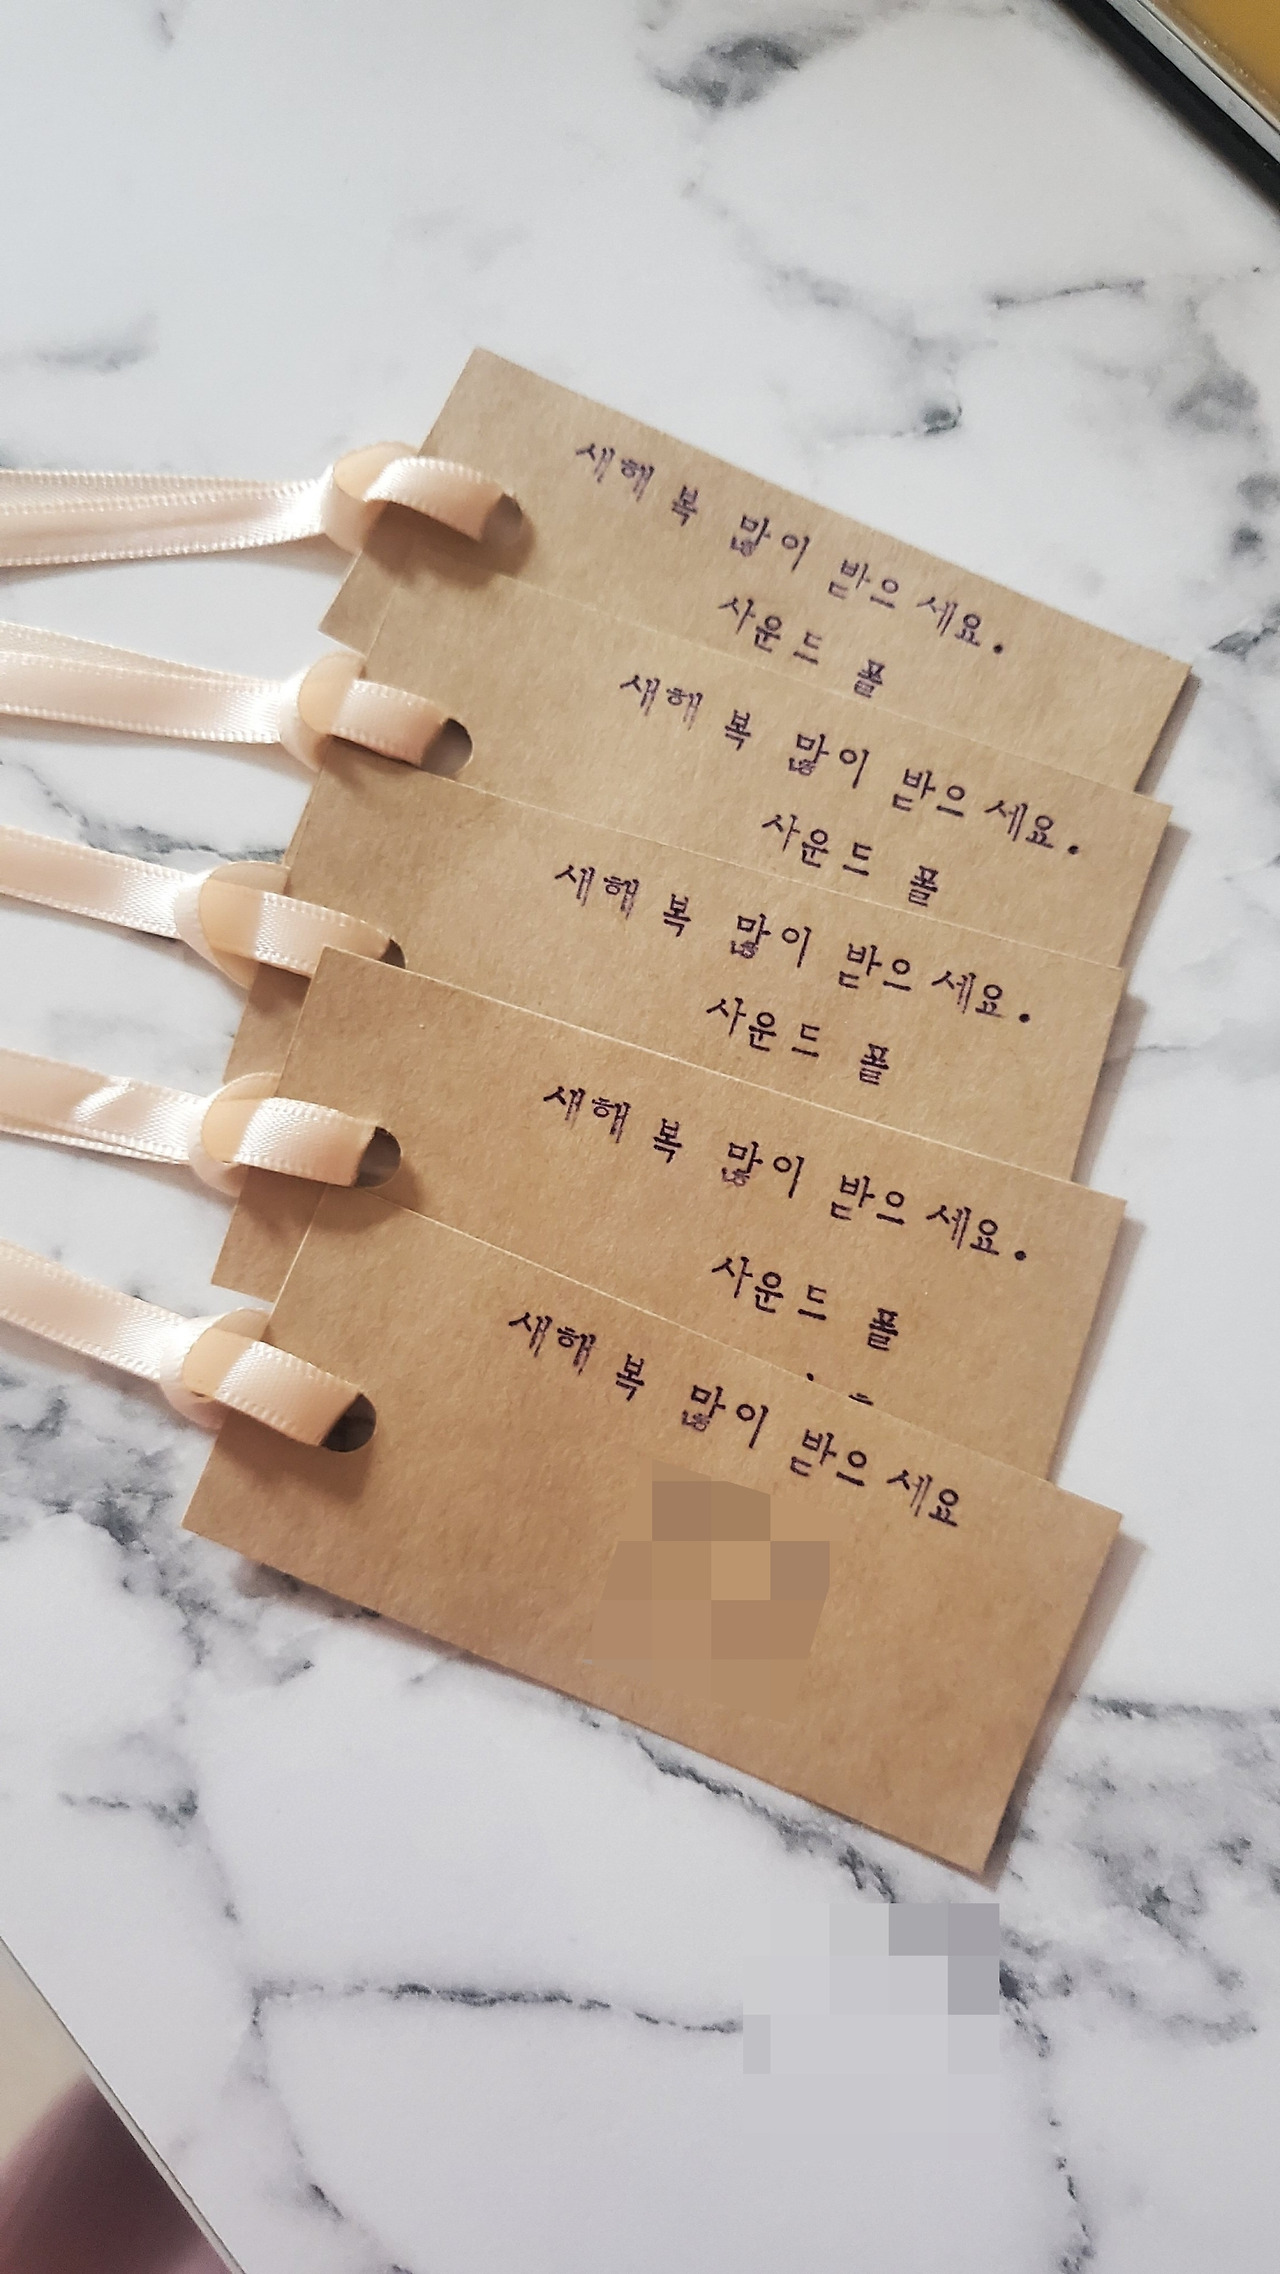 새해 복 많이 받으세요.
사운드 폴
새해 복 많이 받으세요.
사운드 폴
새해 복 많이 받으세요.
사운드 폴
새해 복 많이 받으세요.
사운드 폴
새해 복 많이 받으세요